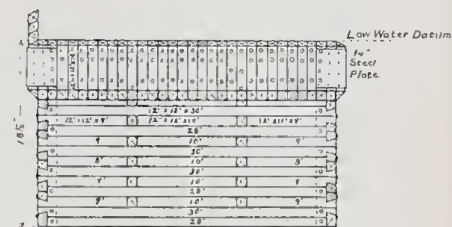 Low Water Datum
1/4"
Steel
Plate
18½'
12" x 12" x 30'
12" x 12" x 9' 12" x 12" x 10' 12" x 12" x 9'
28'
9' 10' 9'
30'
8' 10' 8'
30'
9' 10' 9'
28'
9' 10' 9'
30'
28'